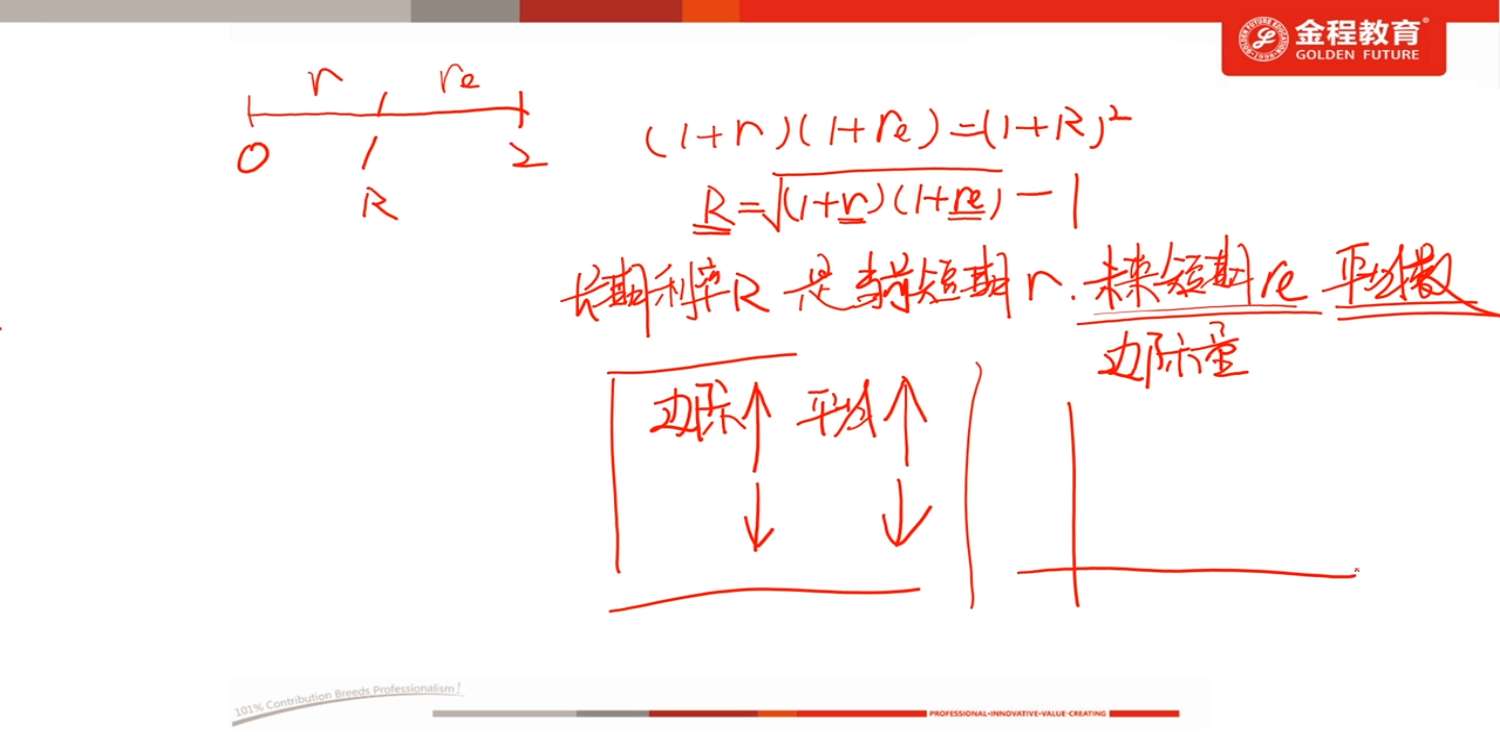 金程教育
GOLDEN FUTURE
r re
0 1 2
R
(1+r)(1+re)=(1+R)²
R=√(1+r)(1+re) - 1
长期利率R 是当前短期r. 未来短期re 平均数
边际量
边际↑ 平均↑
↓ ↓
101% Contribution Breeds Professionalism!
PROFESSIONAL·INNOVATIVE·VALUE-CREATING